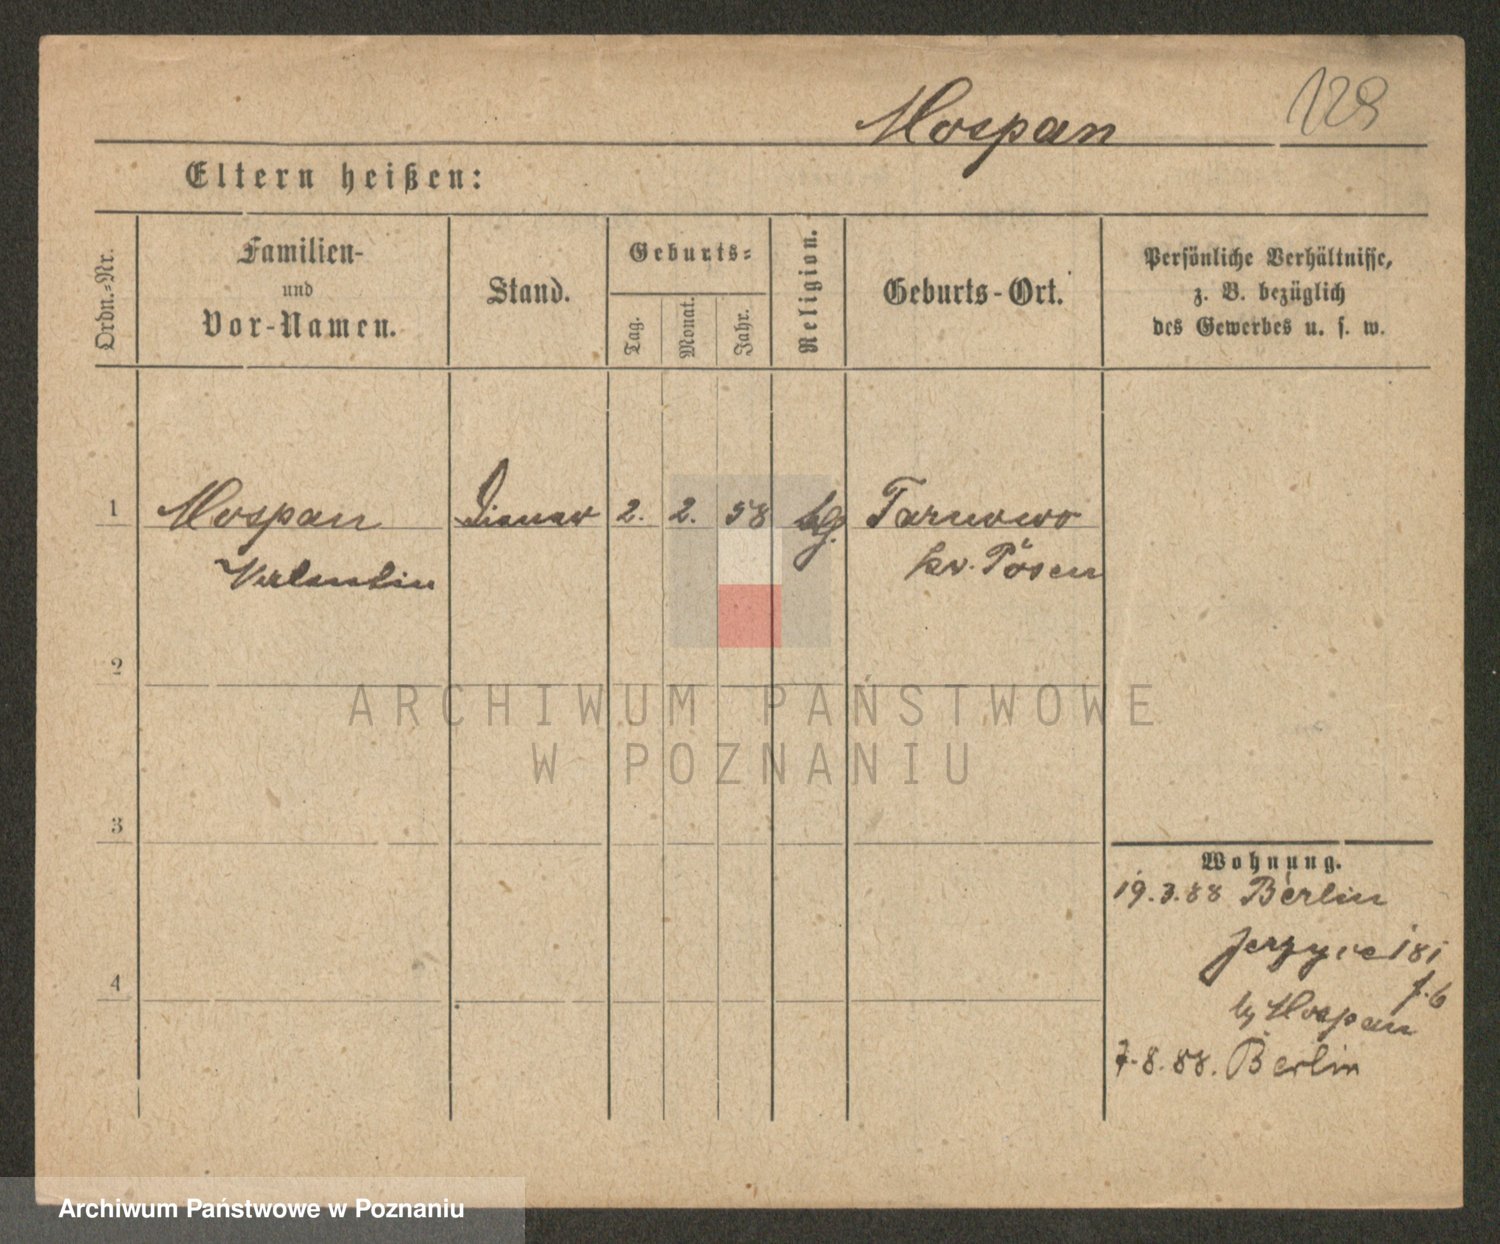 Mospan 129
Eltern heißen:
Ordn.-Nr.
Familien-
und
Vor-Namen.
Stand.
Geburts-
Tag.
Monat.
Jahr.
Religion.
Geburts-Ort.
Persönliche Verhältnisse,
z. B. bezüglich
des Gewerbes u. s. w.
1 Mospan Diener 2. 2. 58 Tarnowo
Valentin kr. Posen
2
3
4
Wohnung.
19.3.88 Berlin
Jerzyce 181
b/ Mospan
7.8.88. Berlin
ARCHIWUM PAŃSTWOWE
W POZNANIU
Archiwum Państwowe w Poznaniu